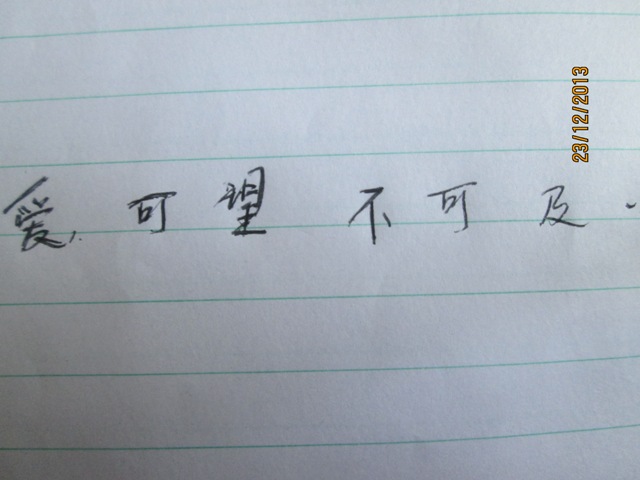 爱,可望 不可及.
23/12/2013